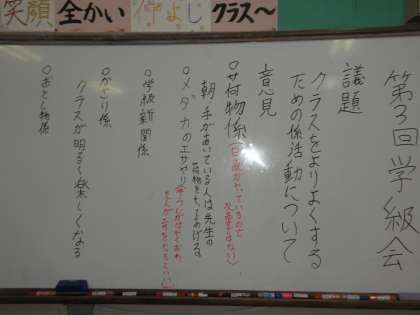 笑顔 全かい 仲よし クラス〜
第3回学級会
議題
クラスをよりよくする
ための係活動について
意見
○サ荷物係
朝、手があいている人は先生の
荷物をもってあげる。
○メダカのエサやり
○学級新聞係
○かざり係
クラスが明るく楽しくなる
○おとし物係